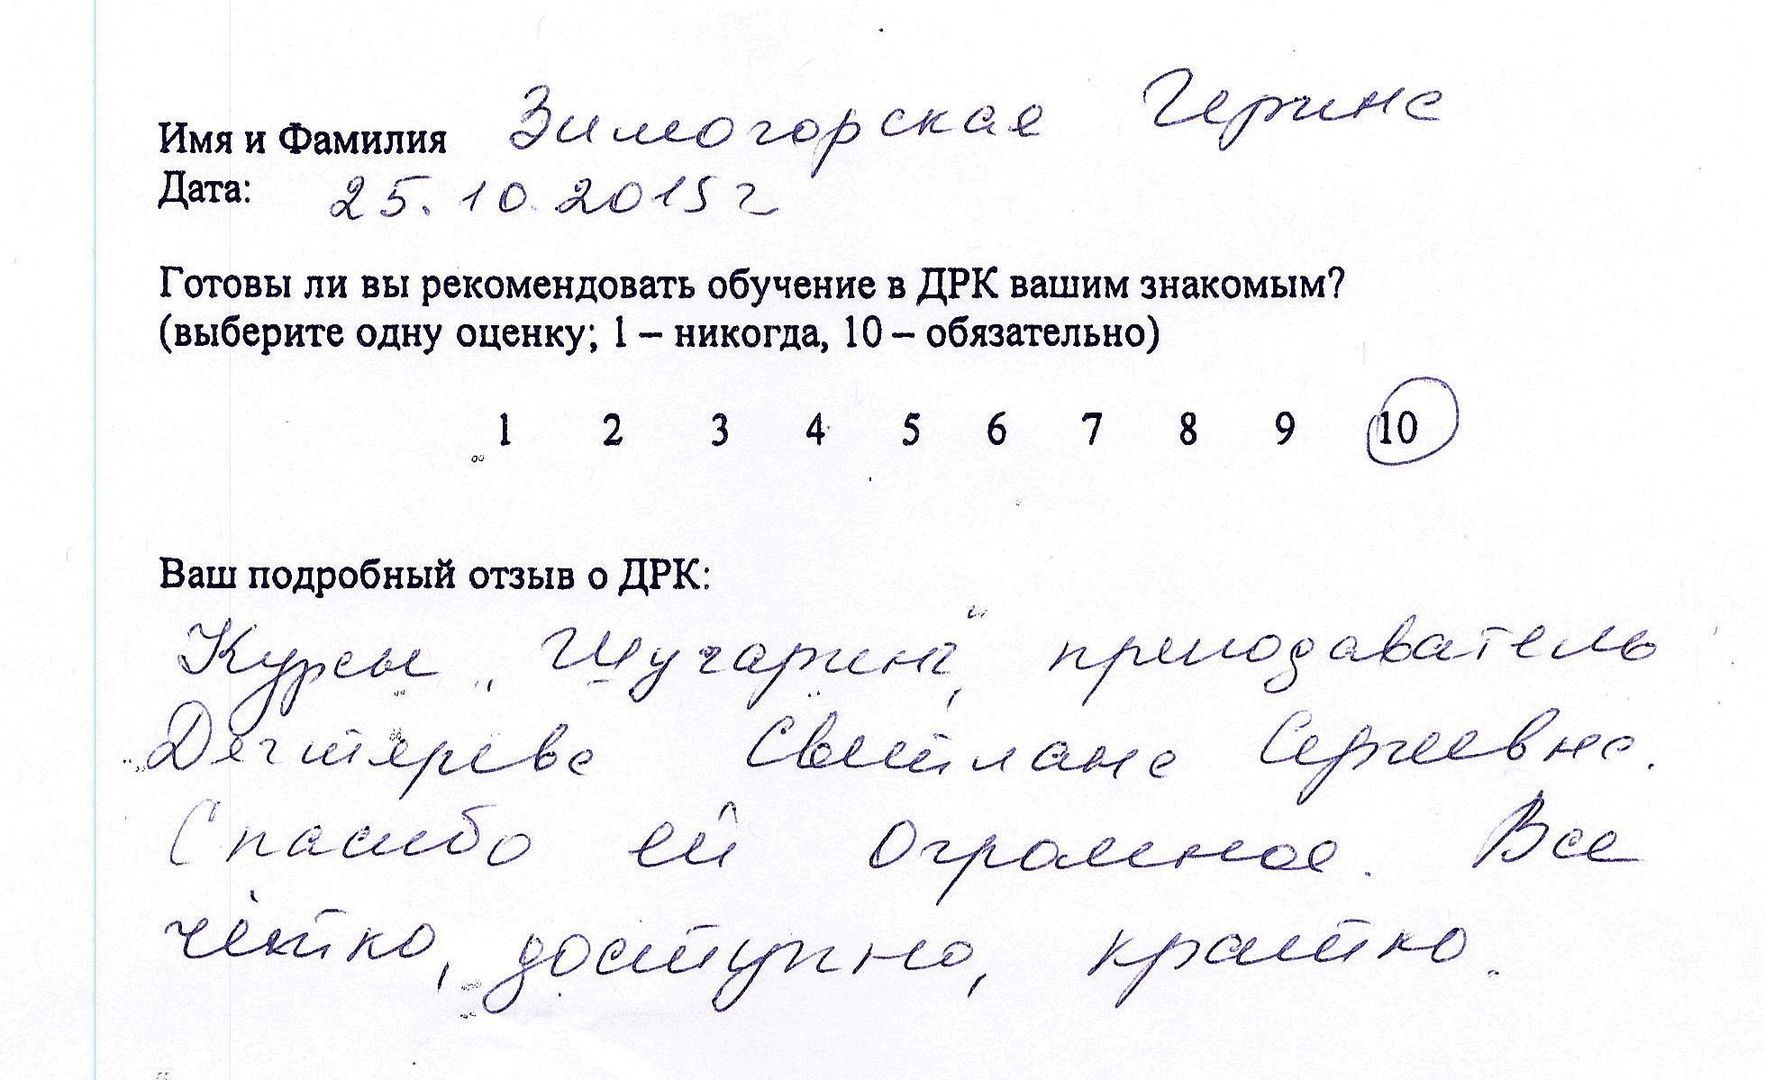 Имя и Фамилия Зимогорская
Дата: 25.10.2015г
Готовы ли вы рекомендовать обучение в ДРК вашим знакомым?
(выберите одну оценку; 1 – никогда, 10 – обязательно)
1 2 3 4 5 6 7 8 9 10
Ваш подробный отзыв о ДРК:
Курсы „Шугаринг“, преподаватель
Дегтярева Светлана Сергеевна.
Спасибо ей огромное. Все
чётко, доступно, кратко.